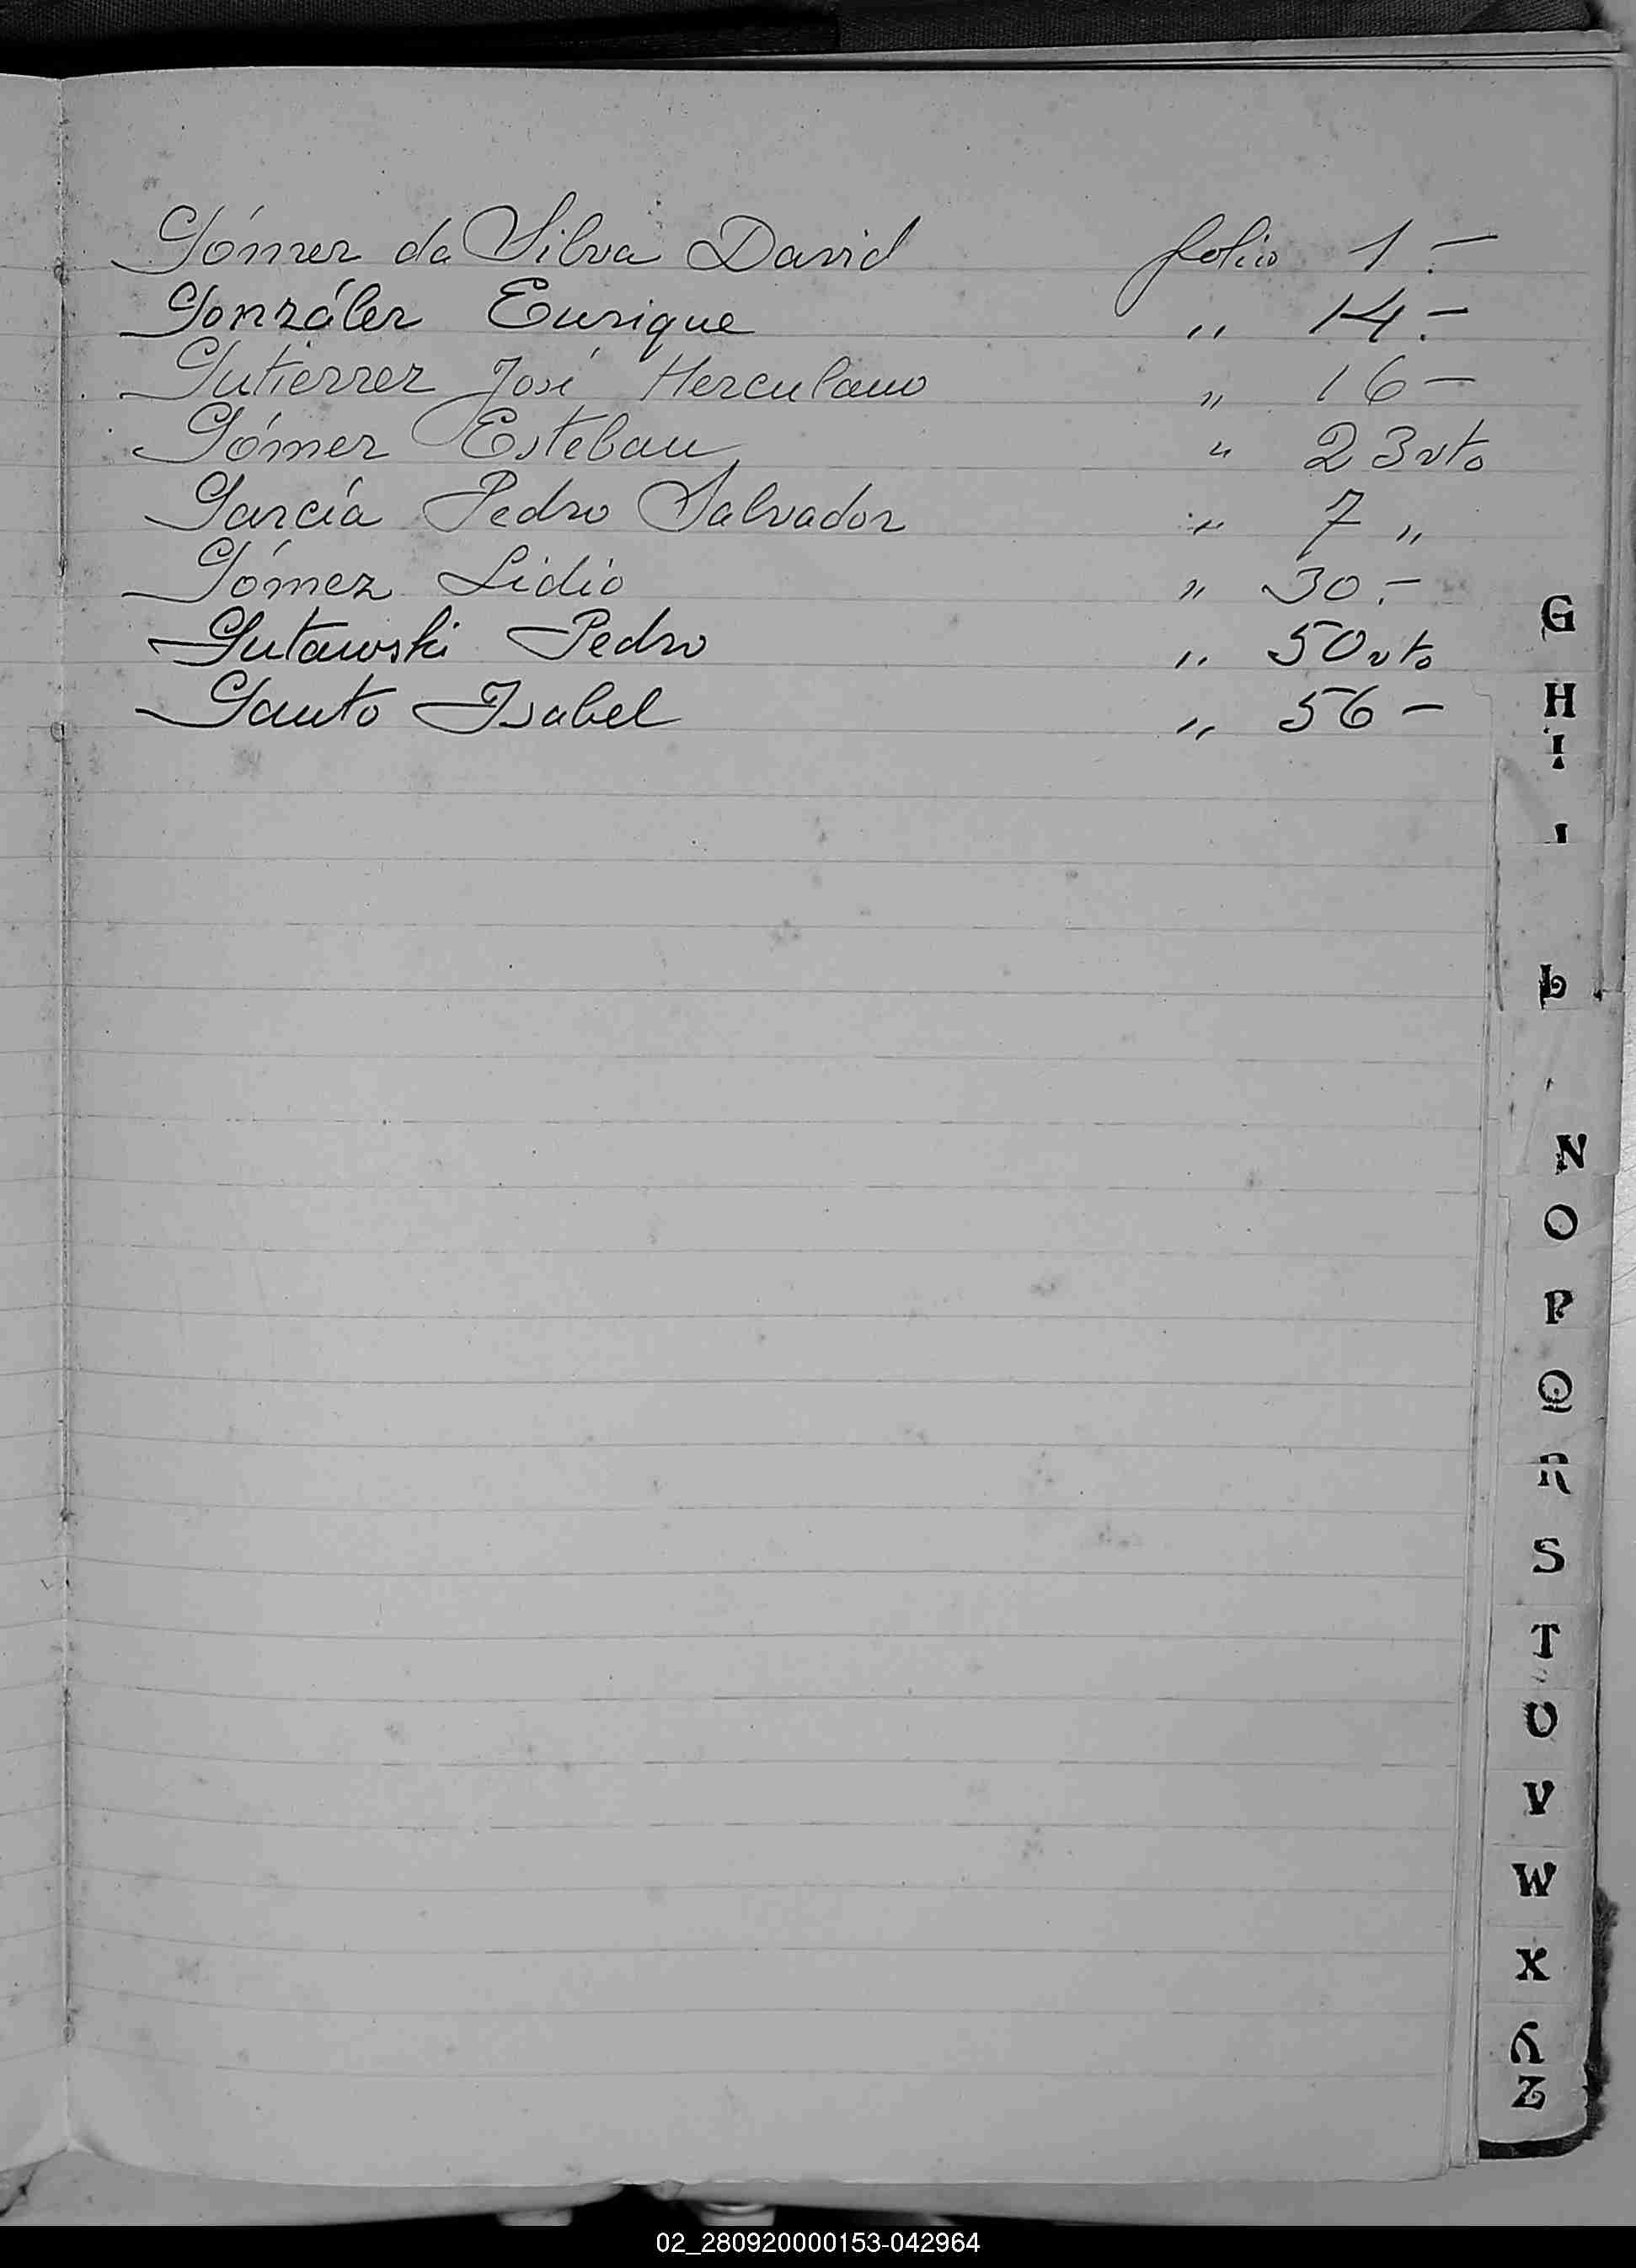 Gómez da Silva David folio 1.-
González Enrique " 14.-
Gutiérrez José Herculano " 16-
Gómez Esteban " 23vto
García Pedro Salvador " 7 "
Gómez Lidio " 30.-
Gutawski Pedro " 50vto
Gauto Isabel " 56-
G
H
I
L
N
O
P
Q
R
S
T
U
V
W
X
Y
Z
02_280920000153-042964